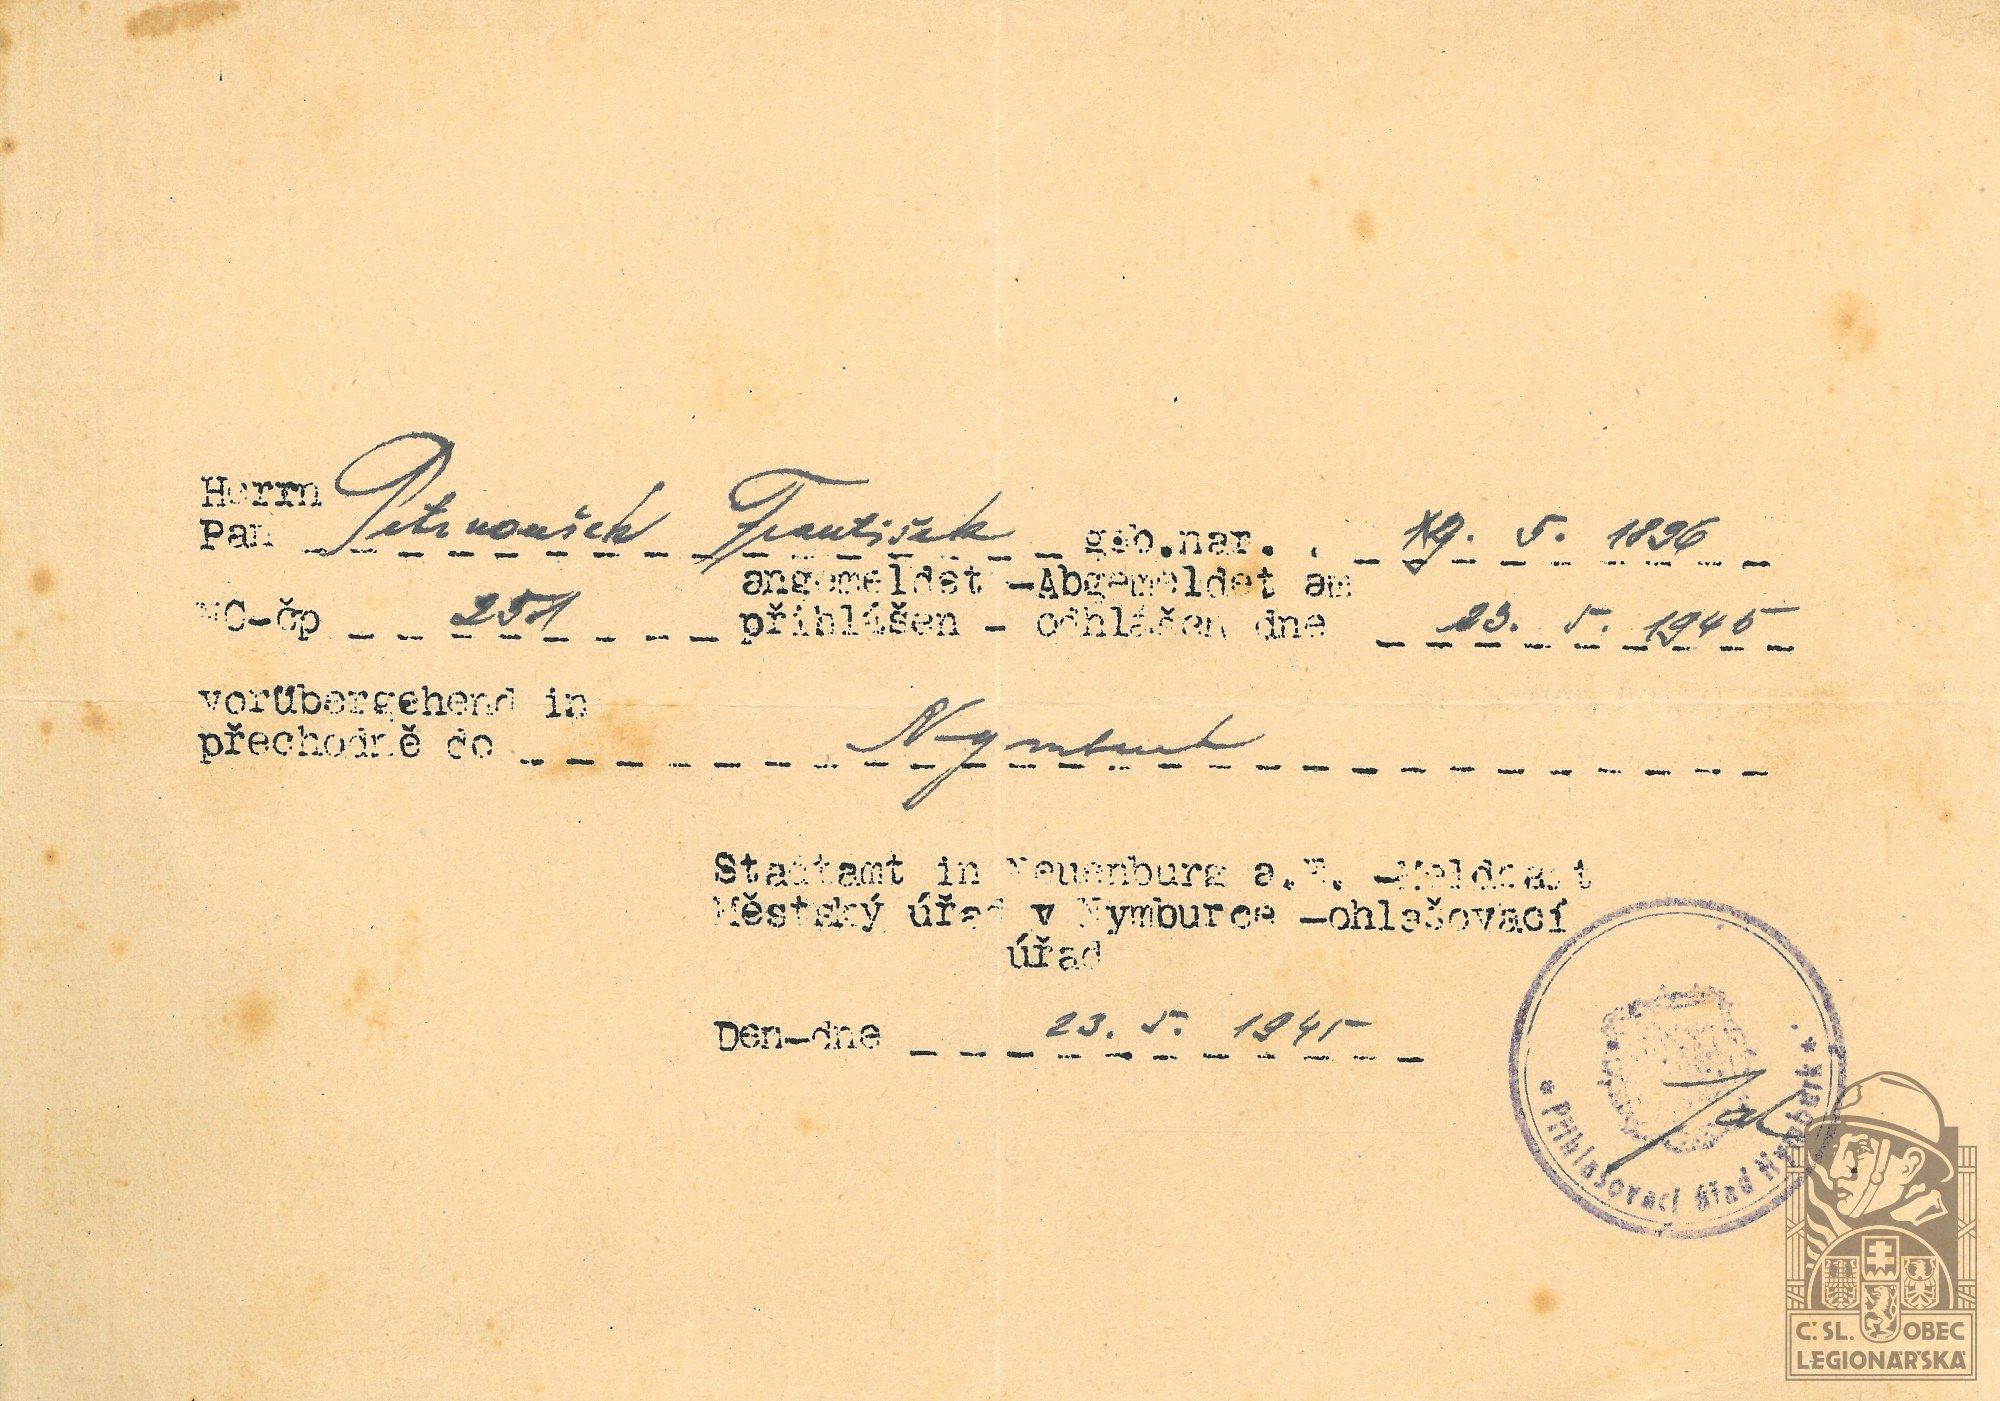 Herrn
Pan Petrnoušek František geb.nar. 19. 5. 1896
angemeldet -Abgemeldet am
NC-čp 251 přihlášen - odhlášen dne 23. 5. 1945
vorübergehend in
přechodně do Nymburk
Stadtamt in Neuenburg a.E. -Meldeamt
Městský úřad v Nymburce -ohlašovací
úřad
Den-dne 23. 5. 1945
* Přihlašovací úřad Nymburk *
Č.SL. OBEC
LEGIONÁŘSKÁ